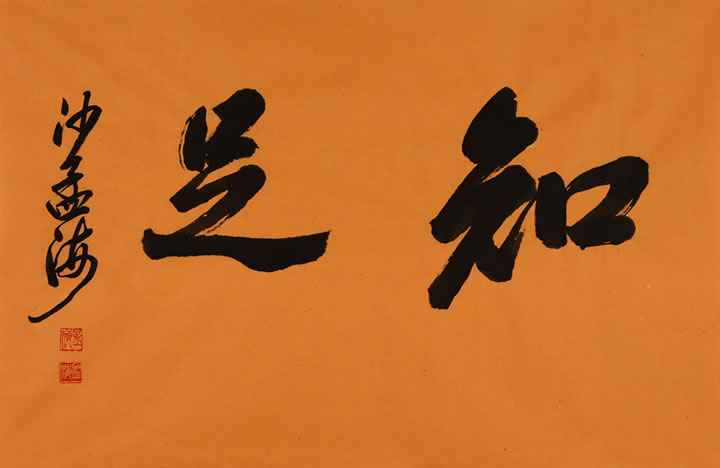 知足
沙孟海